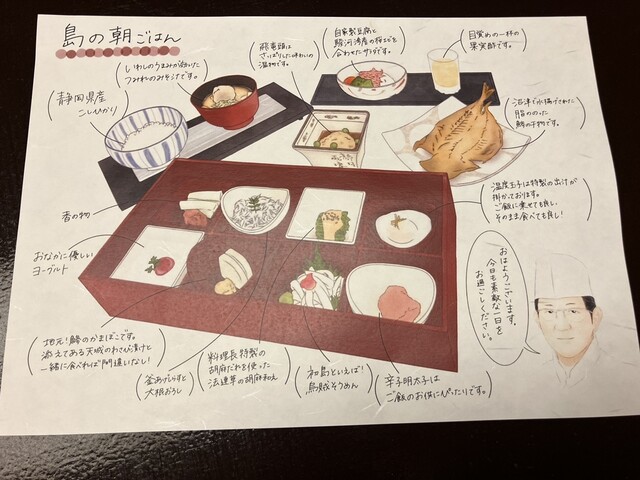 島の朝ごはん
静岡県産
こしひかり
いわしのうまみの溶けた
つみれのみそ汁です。
飛竜頭は
さっぱりした味わいの
温物です。
自家製豆腐と
駿河湾産の桜えびを
合わせたサラダです。
目覚めの一杯の
果実酢です。
沼津で水揚げされた
脂ののった
鯵の干物です。
温度玉子は特製の出汁が
掛かっております。
ご飯に乗せても良し、
そのまま食べても良し!
香の物
おなかに優しい
ヨーグルト
おはようございます。
今日も素敵な一日を
お過ごしください。
地元!鯵のかまぼこです。
添えてある天城のわさび漬けと
一緒に食べれば間違いない!
釜あげしらすと
大根おろし
料理長特製の
胡麻だれを使った
法蓮草の胡麻和え
初島といえば!
烏賊そうめん
辛子明太子は
ご飯のお供にぴったりです。